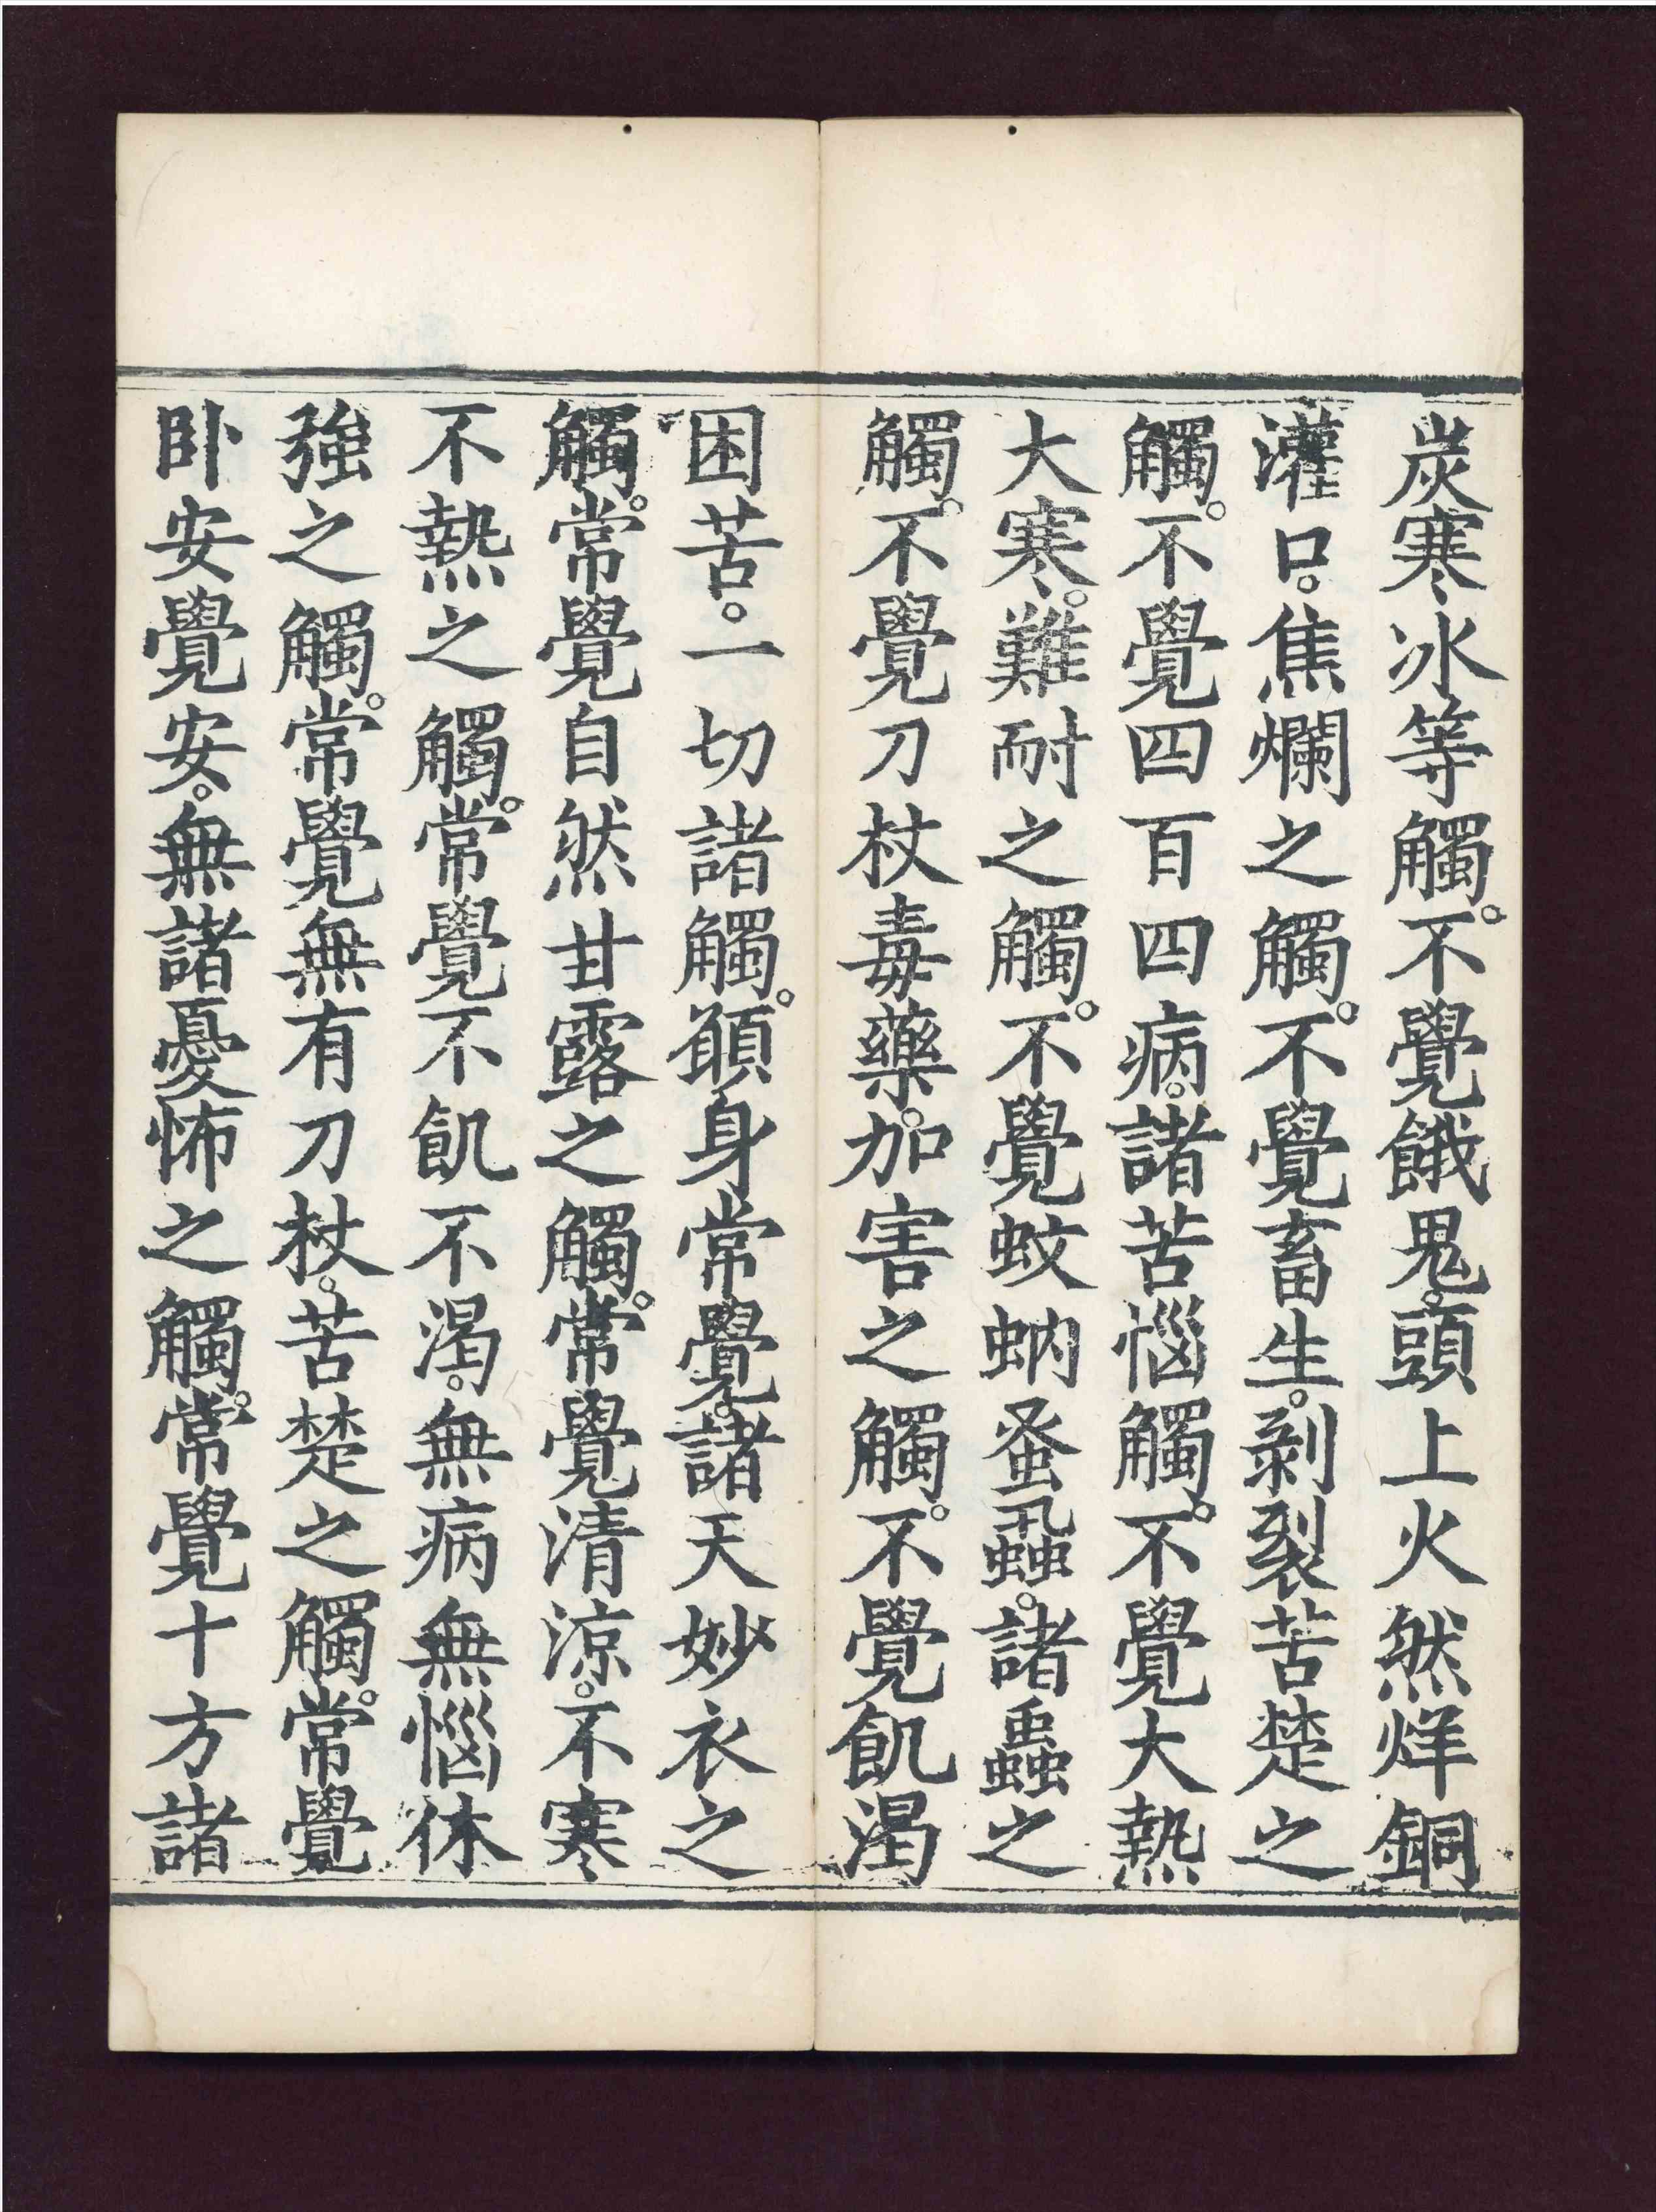 炭寒冰等觸。不覺餓鬼。頭上火然烊銅
灌口。焦爛之觸。不覺畜生。剥裂苦楚之
觸。不覺四百四病。諸苦惱觸。不覺大熱
大寒。難耐之觸。不覺蚊蚋蚤蝨。諸蟲之
觸。不覺刀杖毒藥。加害之觸。不覺飢渴
困苦。一切諸觸。願身常覺。諸天妙衣之
觸。常覺自然甘露之觸。常覺清涼。不寒
不熱之觸。常覺不飢不渴。無病無惱休
強之觸。常覺無有刀杖。苦楚之觸。常覺
卧安覺安。無諸憂怖之觸。常覺十方諸